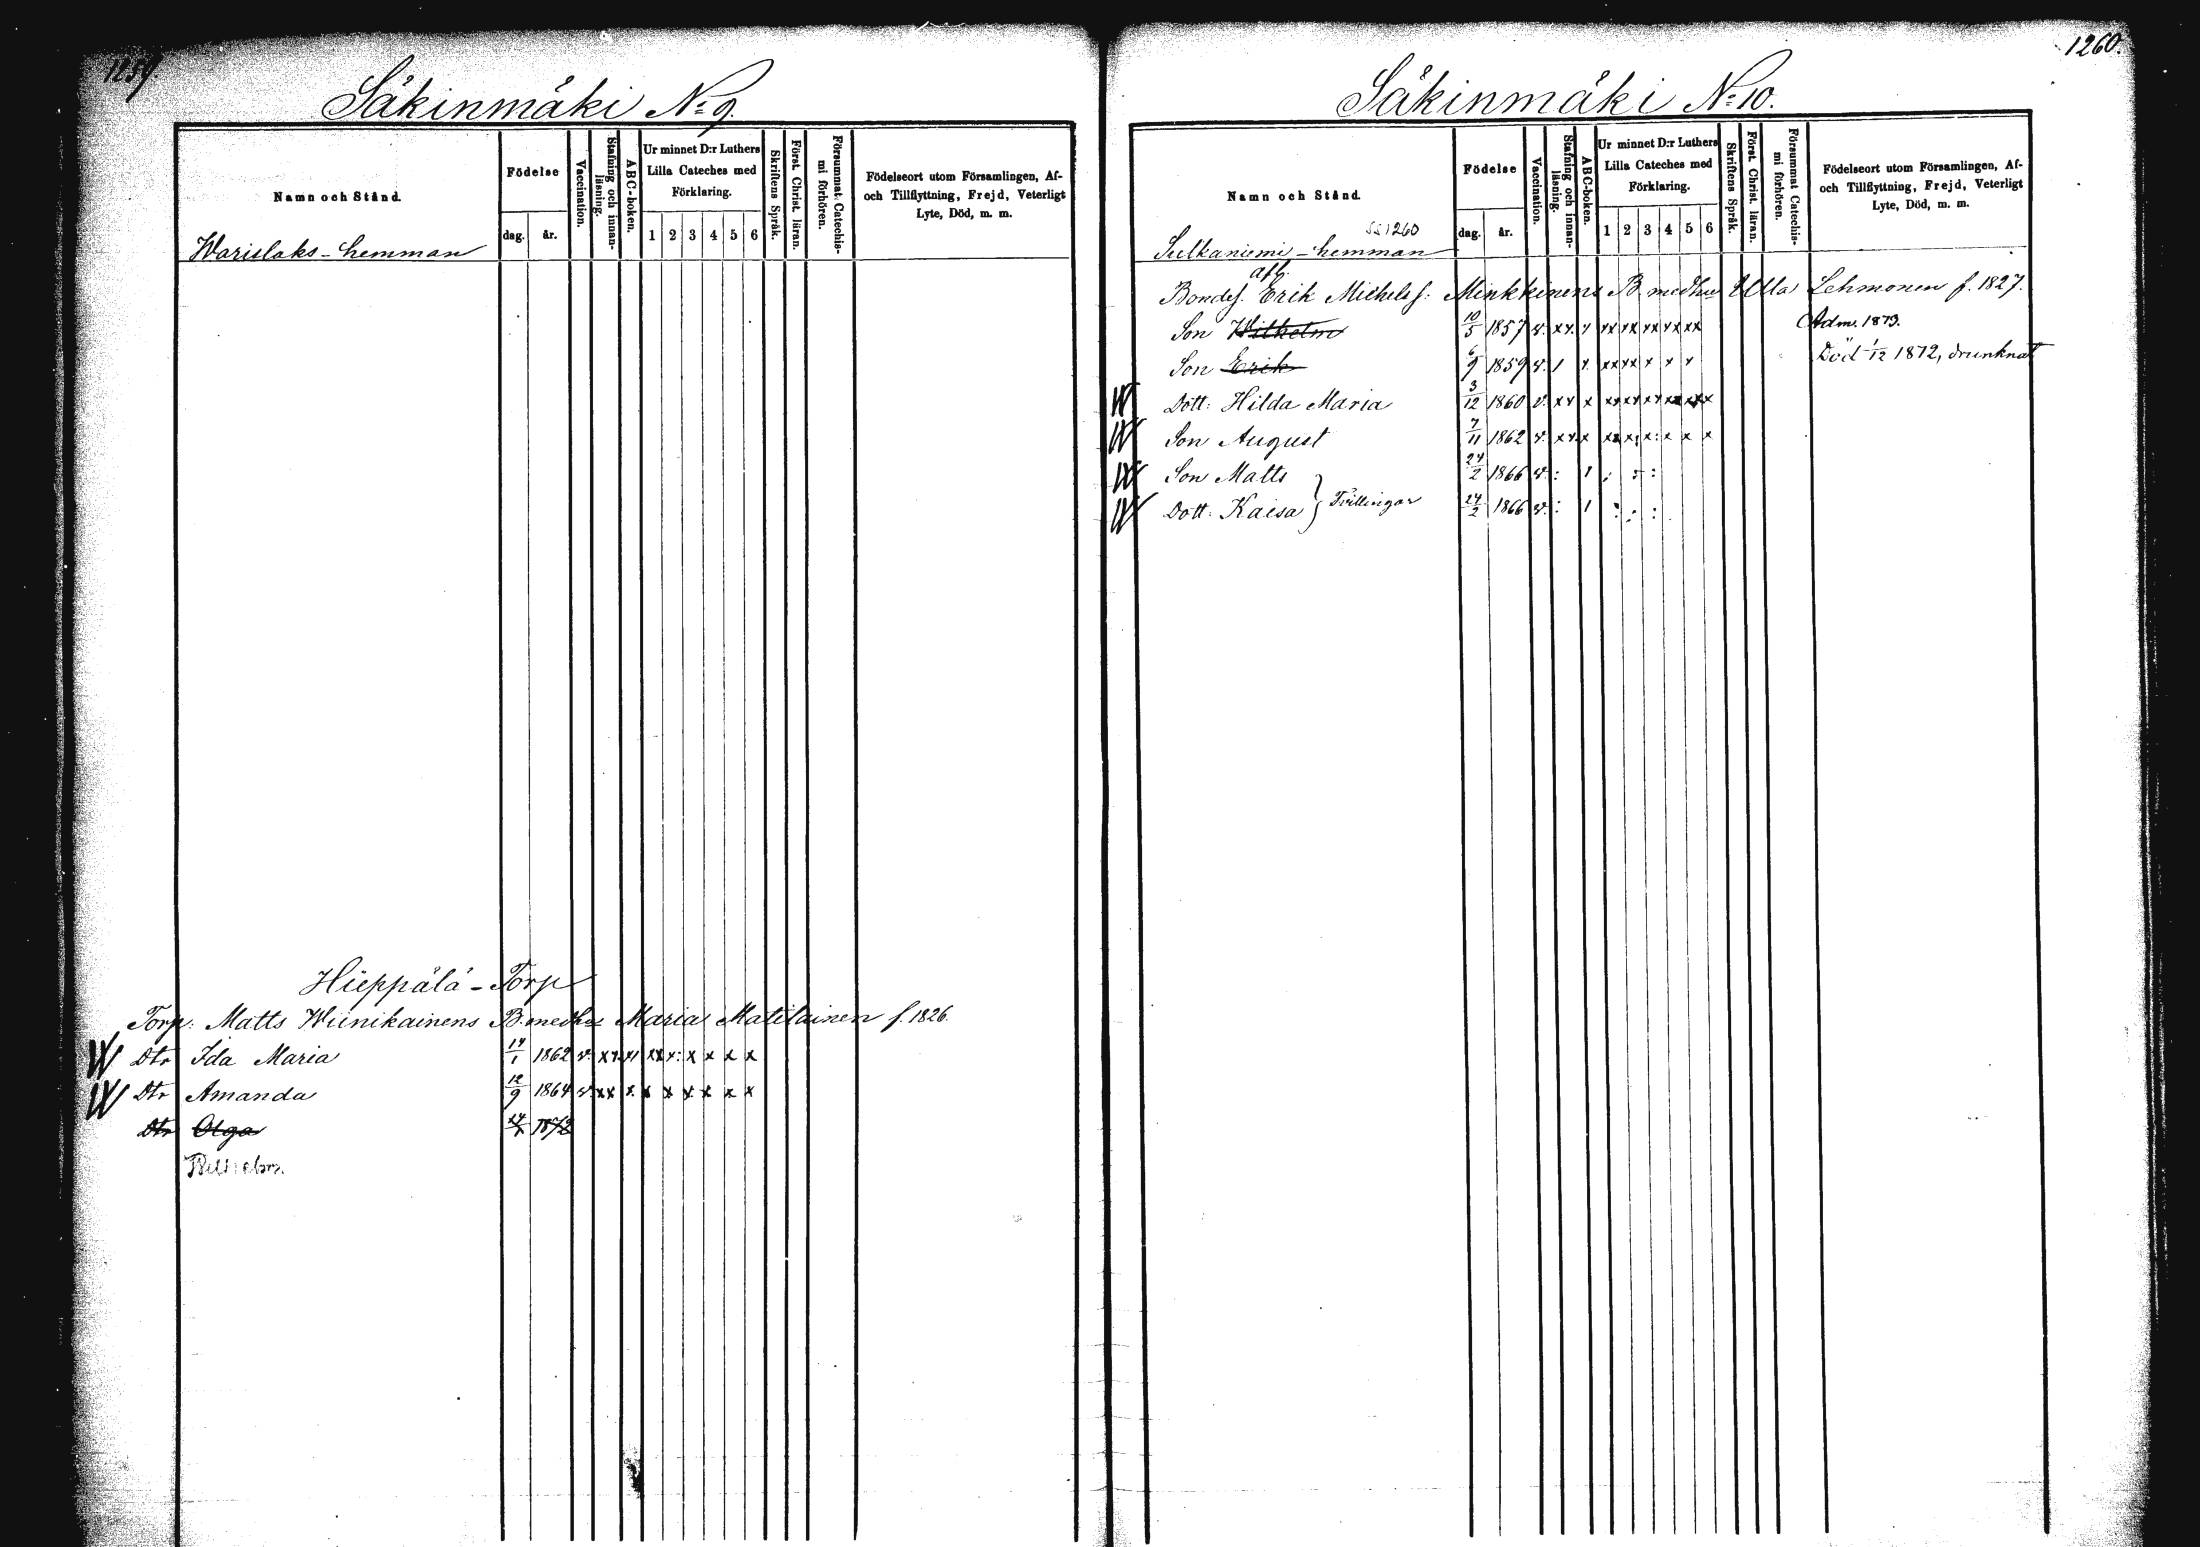 1259.
Säkinmäki N:o 9.
Namn och Stånd.
Födelse
dag. år.
Vaccination.
Stafning och innanläsning.
ABC-boken.
Ur minnet D:r Luthers Lilla Cateches med Förklaring.
1 2 3 4 5 6
Skriftens Språk.
Först. Christ. läran.
Försummat Catechismi förhören.
Födelseort utom Församlingen, Af- och Tillflyttning, Frejd, Veterligt Lyte, Död, m. m.
Warislaks-hemman
Hieppälä-Torp
Torp: Matts Wiinikainens B. medhu Maria Matilainen f. 1826.
W Dtr Ida Maria 14/1 1862 v. xx x xx x: x x x x
W Dtr Amanda 12/9 1864 v. xx x x x x x x x
Dtr Olga 1872
1260.
Säkinmäki N:o 10.
Namn och Stånd.
Födelse
dag. år.
Vaccination.
Stafning och innanläsning.
ABC-boken.
Ur minnet D:r Luthers Lilla Cateches med Förklaring.
1 2 3 4 5 6
Skriftens Språk.
Först. Christ. läran.
Försummat Catechismi förhören.
Födelseort utom Församlingen, Af- och Tillflyttning, Frejd, Veterligt Lyte, Död, m. m.
1260
Sulkaniemi-hemman
afl.
Bondes. Erik Michelss: Minkkinens B medhu Ulla Lehmonen f. 1827.
Son Wilhelm 10/5 1857 v. xx. x xx xx xx xx xx Adm. 1873.
Son Erik 6/9 1859 v. 1 x. xx xx x x x Död 1/12 1872, drunknat
W Dott: Hilda Maria 3/12 1860 v. xx x xx xx xx xx xx x
W Son August 7/11 1862 v. xx x xx x: x: x x x
W Son Matts 24/2 1866 v. : 1
W Dott: Kaisa } Tvillingar 24/2 1866 v. : 1